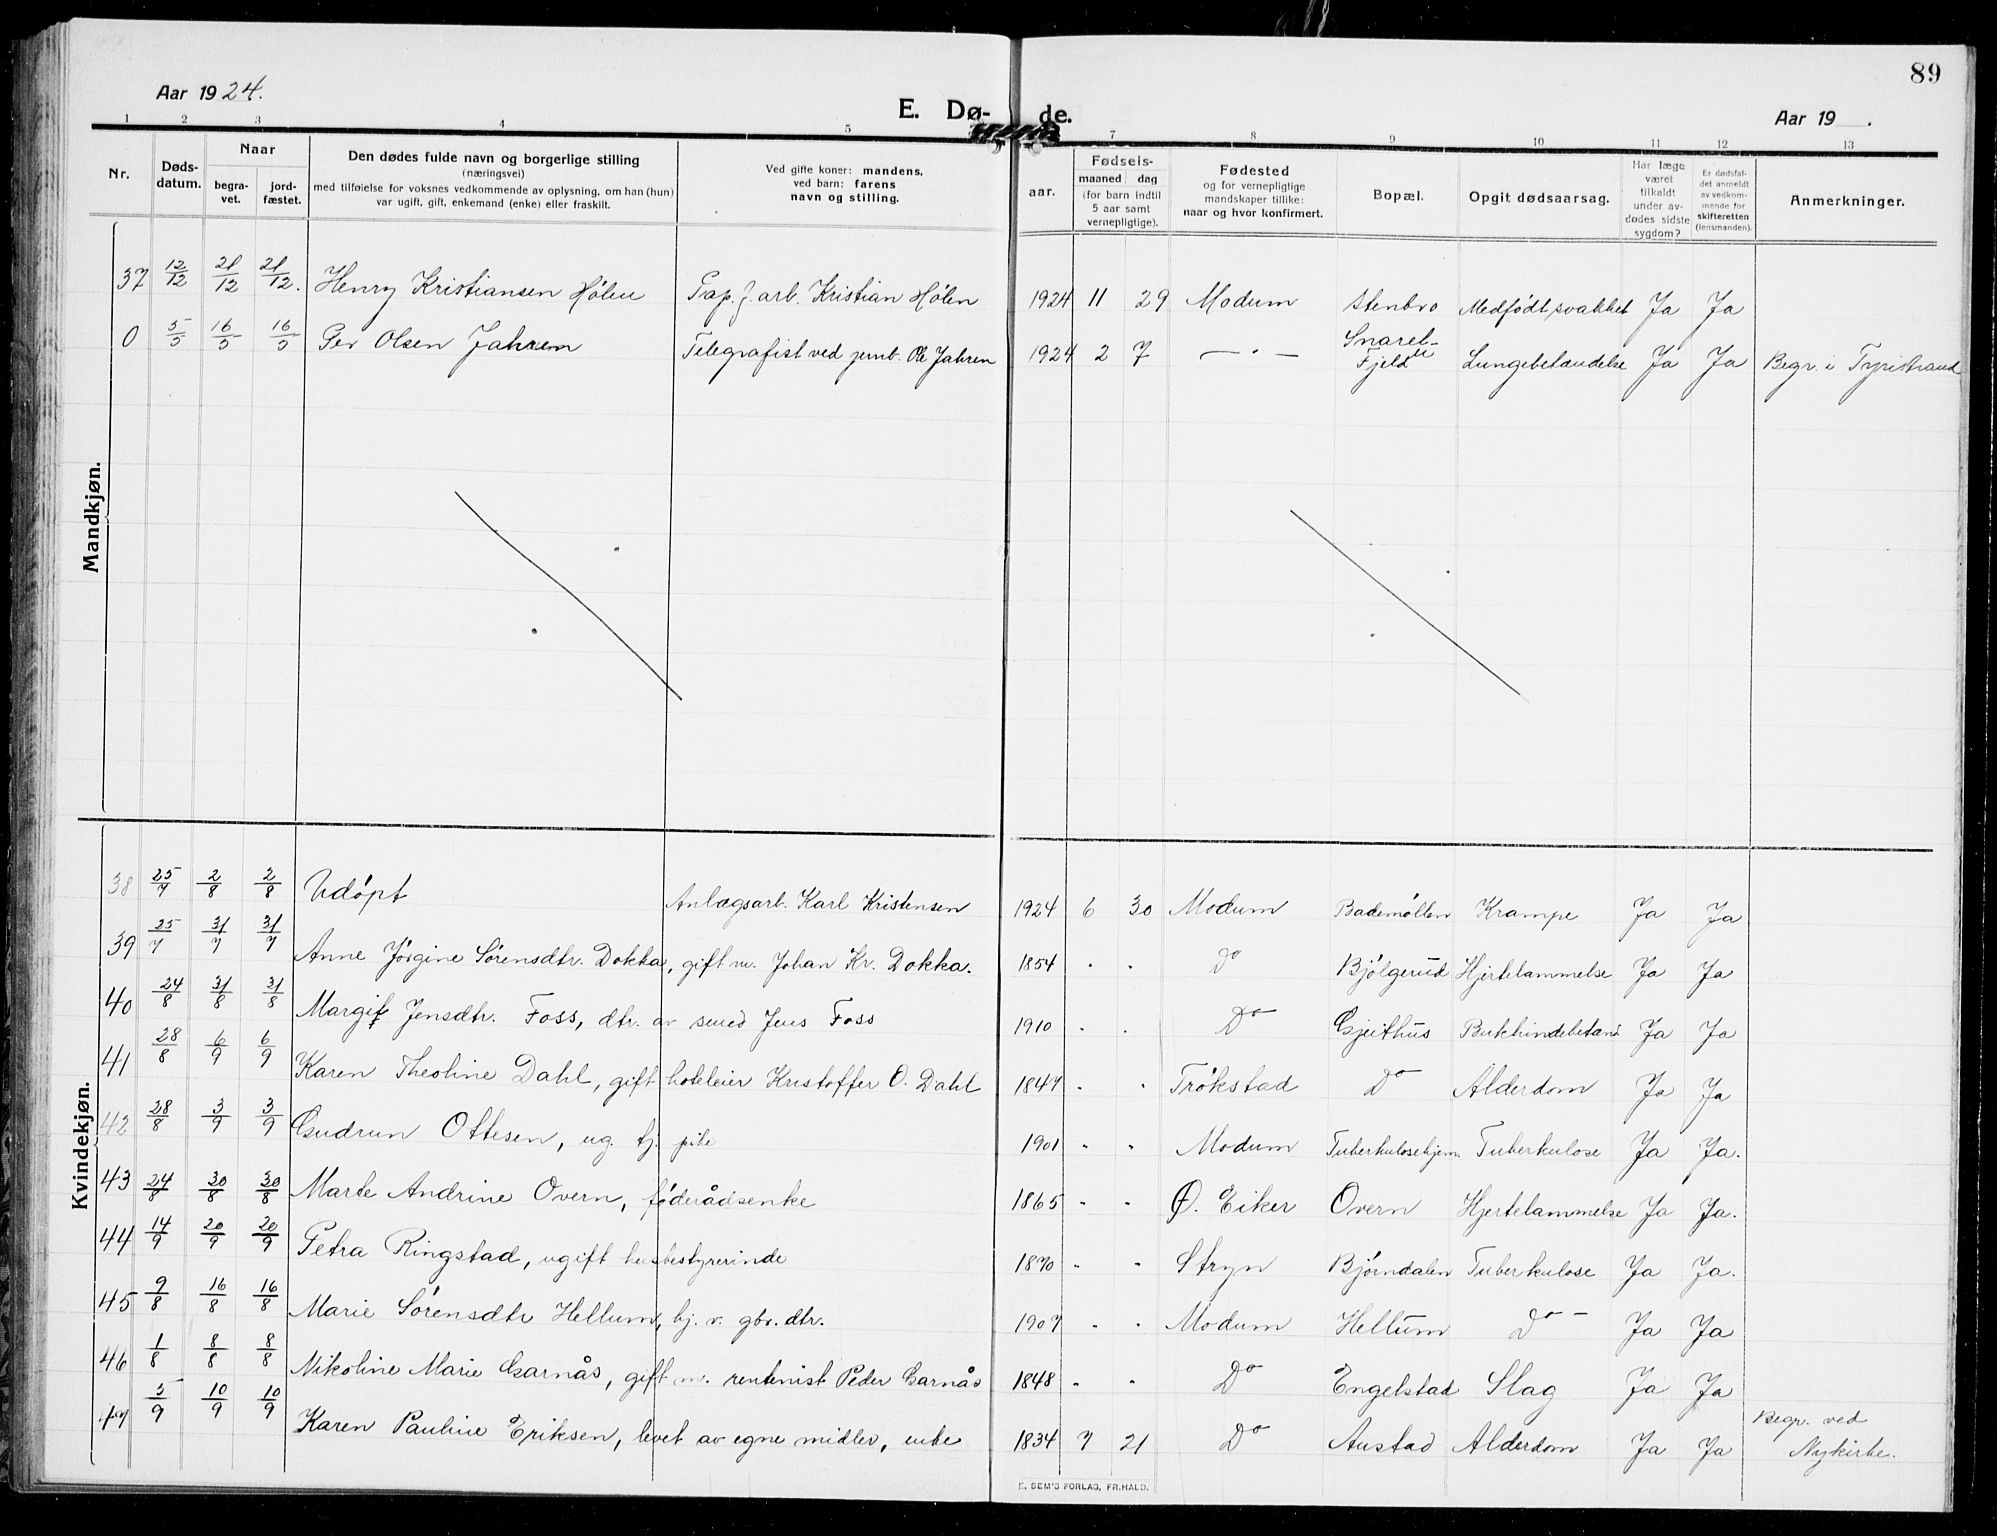 89
Aar 1924.
E. Dø-de.
Aar 19 .
1 2 3 4 5 7 8 9 10 11 12 13
Nr.
Døds-
datum.
Naar
begra-
vet.
jord-
fæstet.
Den dødes fulde navn og borgerlige stilling
(næringsvei)
med tilføielse for voksnes vedkommende av oplysning, om han (hun)
var ugift, gift, enkemand (enke) eller fraskilt.
Ved gifte koner: mandens,
ved barn: farens
navn og stilling.
aar.
Fødsels-
maaned dag
(for barn indtil
5 aar samt
vernepligtige).
Fødested
og for vernepligtige
mandskaper tillike:
naar og hvor konfirmert.
Bopæl.
Opgit dødsaarsag.
Har læge
været
tilkaldt
under av-
dødes sidste
sygdom?
Er dødsfal-
det anmeldt
av vedkom-
mende for
skifteretten
(lensmanden).
Anmerkninger.
Mandkjøn.
37 12/12 21/12 21/12. Henry Kristiansen Hølen Pap.f.arb. Kristian Hølen 1924 11 29 Modum Stenbro Medfødt svakhet Ja Ja
0 5/5 16/5 16/5 Per Olsen Jahren Telegrafist ved jernb. Ole Jahren 1924 2 7 — " — Fjeld Lungebetændelse Ja Ja Begr. i Tyristrand
Kvindekjøn.
38 25/7 2/8 2/8 Udøpt Anlægsarb. Karl Kristensen 1924 6 30 Modum Bademøllen Krampe Ja Ja
39 25/7 31/7 31/7 Anne Jørgine Sørensdtr. Dokka, gift m. Johan Kr. Dokka. 1854 " " Do Bjølgerud Hjertelammelse Ja Ja
40 24/8 31/8 31/8 Margit Jensdtr. Foss, dtr. av smed Jens Foss 1910 " " Do Gjeithus Bukhindebetænd Ja Ja
41 28/8 6/9 6/9 Karen Theoline Dahl, gift hoteleier Kristoffer O. Dahl 1847 " " Trøkstad Do Alderdom Ja Ja
42 28/8 3/9 3/9 Gudrun Ottesen, ug. tj. pike 1901 " " Modum Tuberkulosehjem. Tuberkulose Ja Ja.
43 24/8 30/8 30/8 Marte Andrine Overn, føderådsenke 1865 " " Ø. Eiker Overn Hjertelammelse Ja Ja.
44 14/9 20/9 20/9 Petra Ringstad, ugift husbestyrerinde 1870 " " Stryn Bjørndalen Tuberkulose Ja Ja.
45 9/8 16/8 16/8 Marie Sørensdtr Hellum, hj. v. gbr. dtr. 1907 " " Modum Hellum Do — Ja Ja
46 1/8 8/8 8/8 Nikoline Marie Garnås, gift m. rentenist Peder Garnås 1848 " " Do Engelstad Slag Ja Ja
47 5/9 10/9 10/9 Karen Pauline Eriksen, levet av egne midler, enke 1834 7 21 Do Austad Alderdom Ja Ja Begr. ved
Nykirke.
E. SEM'S FORLAG, FR.HALD.